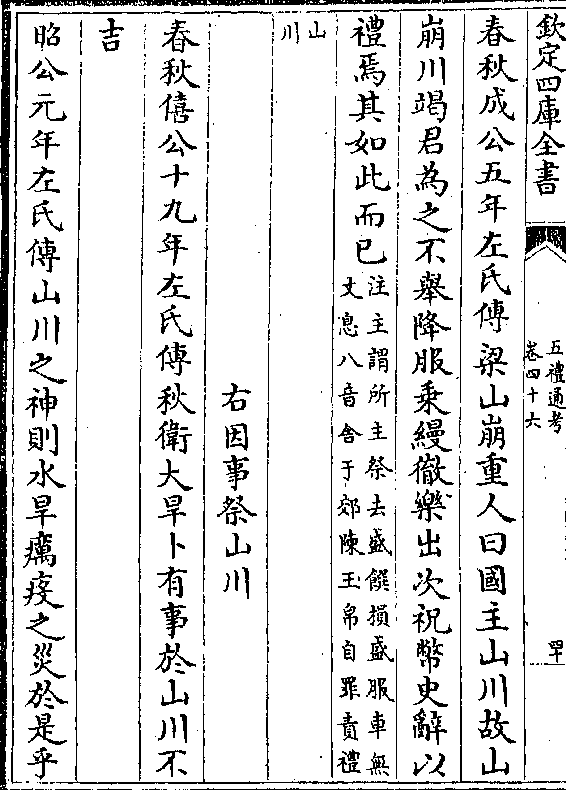 欽定四庫全書
五禮通考
卷四十六
四十
春秋成公五年左氏傳梁山崩重人曰國主山川故山
崩川竭君為之不舉降服乘縵徹樂出次祝幣史辭以
禮焉其如此而已
注主謂所主祭去盛饌損盛服車無
文息八音舍于郊陳玉帛自罪責禮
山
川
右因事祭山川
春秋僖公十九年左氏傳秋衛大旱卜有事於山川不
吉
昭公元年左氏傳山川之神則水旱癘疫之災於是乎